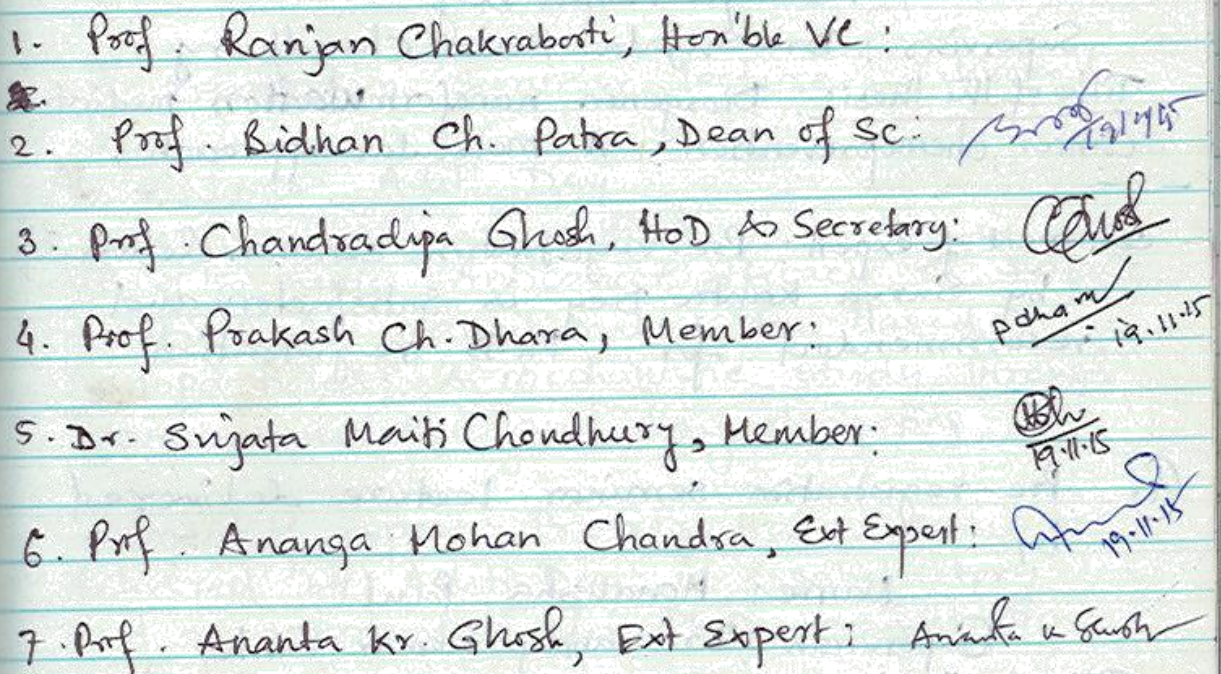 1. Prof. Ranjan Chakraborti, Hon'ble VC:
2. Prof. Bidhan Ch. Patra, Dean of Sc:
3. Prof. Chandradipa Ghosh, HoD & Secretary:
4. Prof. Prakash Ch. Dhara, Member: 19.11.15
5. Dr. Sujata Maiti Choudhury, Member: 19.11.15
6. Prof. Ananga Mohan Chandra, Ext Expert: 19.11.15
7. Prof. Ananta Kr. Ghosh, Ext Expert: